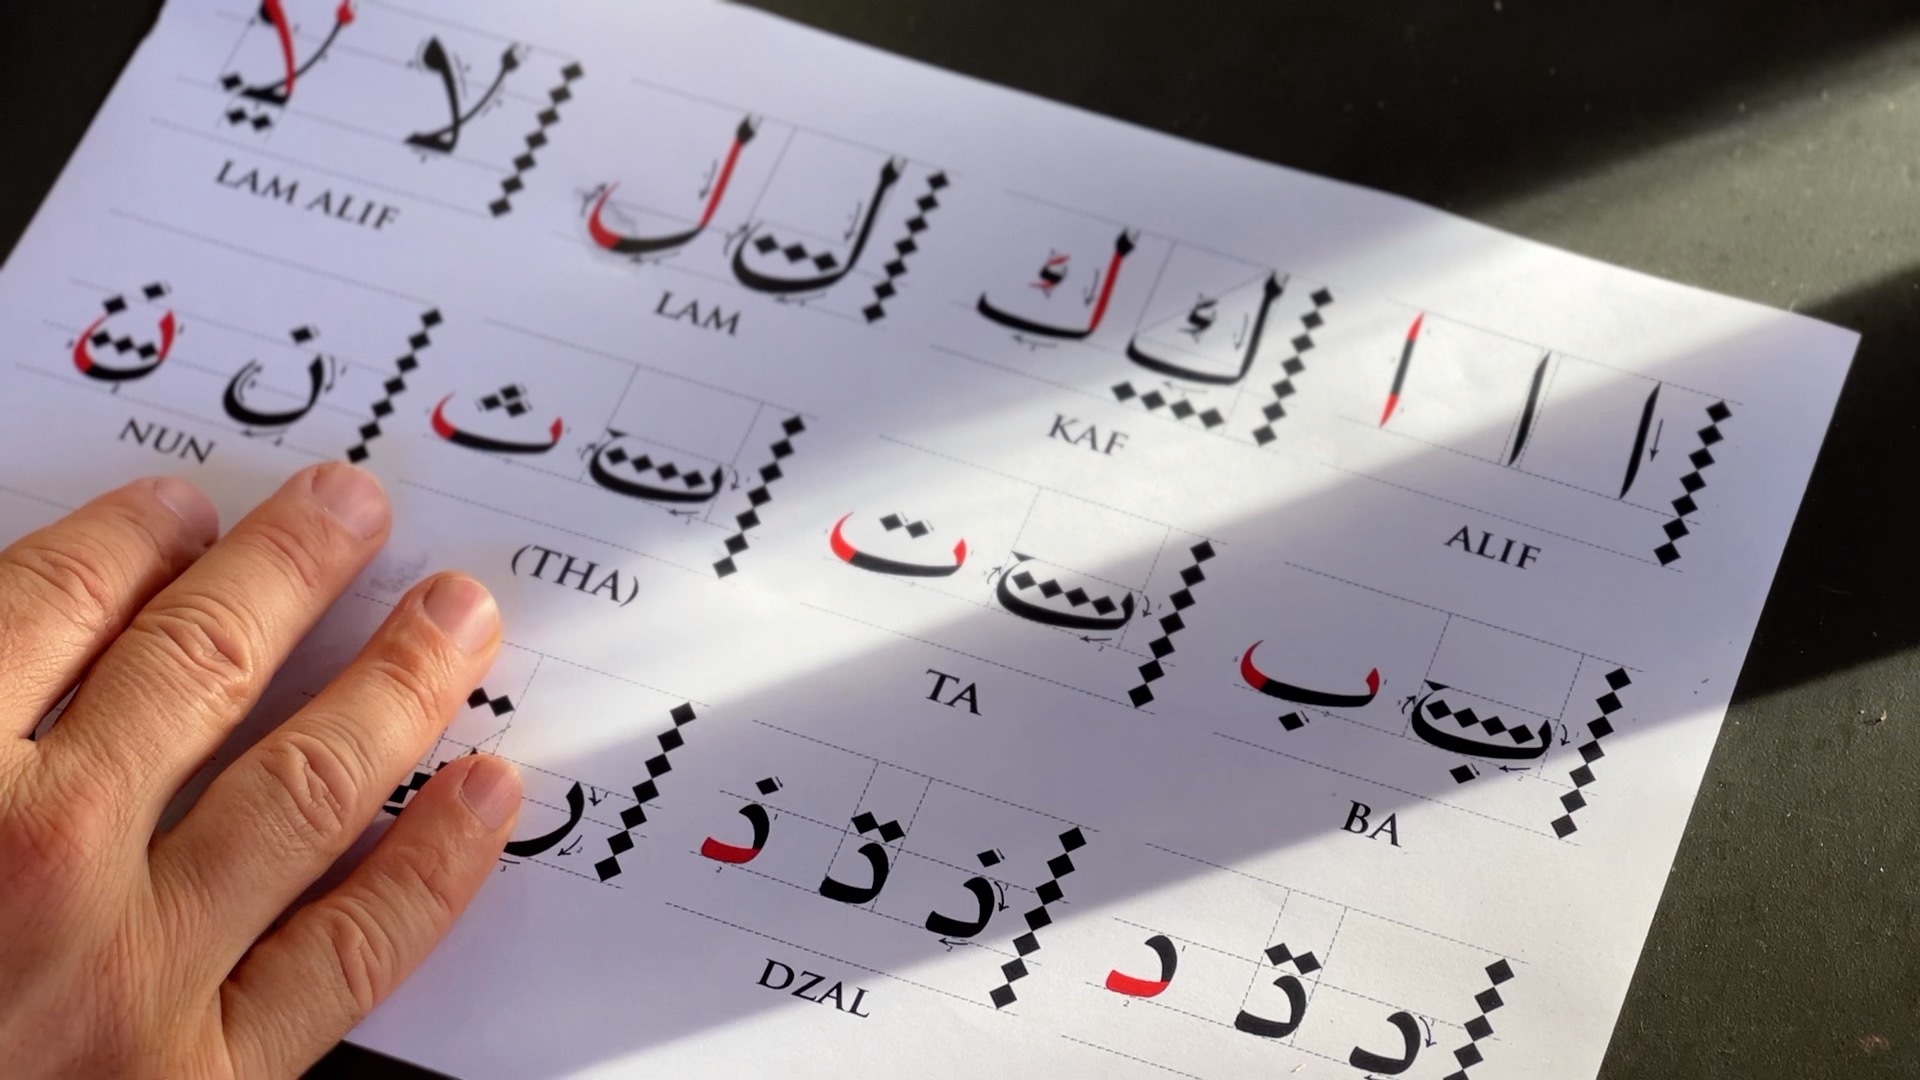 ا ا ا ك ك ل ل لا لا
ALIF KAF LAM LAM ALIF
ب ب ت ت ث ث ن ن
BA TA (THA) NUN
د د د ذ ذ ذ ر
DZAL